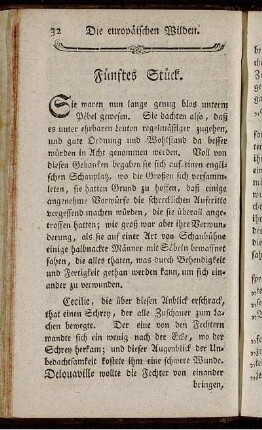 32 Die europäischen Wilden.
Fünftes Stück.
Sie waren nun lange genug blos unterm
Pöbel gewesen. Sie dachten also, daß
es unter ehrbaren Leuten regelmäßiger zugehen,
und gute Ordnung und Wohlstand da besser
würden in Acht genommen werden. Voll von
diesen Gedanken begaben sie sich auf einen engli-
schen Schauplatz, wo die Großen sich versamm-
leten, sie hatten Grund zu hoffen, daß einige
angenehme Vorwürfe die schrecklichen Auftritte
vergessend machen würden, die sie überall ange-
troffen hatten; wie groß war aber ihre Verwunde-
rung, als sie auf einer Art von Schaubühne
einige halbnackte Männer mit Säbeln bewaffnet
sahen, die alles thaten, was durch Behendigkeit
und Fertigkeit gethan werden kann, um sich ein-
ander zu verwunden.
Cecilie, die über diesen Anblick erschrack,
that einen Schrey, der alle Zuschauer zum La-
chen bewegte. Der eine von den Fechtern
wandte sich ein wenig nach der Ecke, wo der
Schrey herkam; und dieser Augenblick der Un-
bedachtsamkeit kostete ihm eine schwere Wunde.
Delouaville wollte die Fechter von einander
bringen,